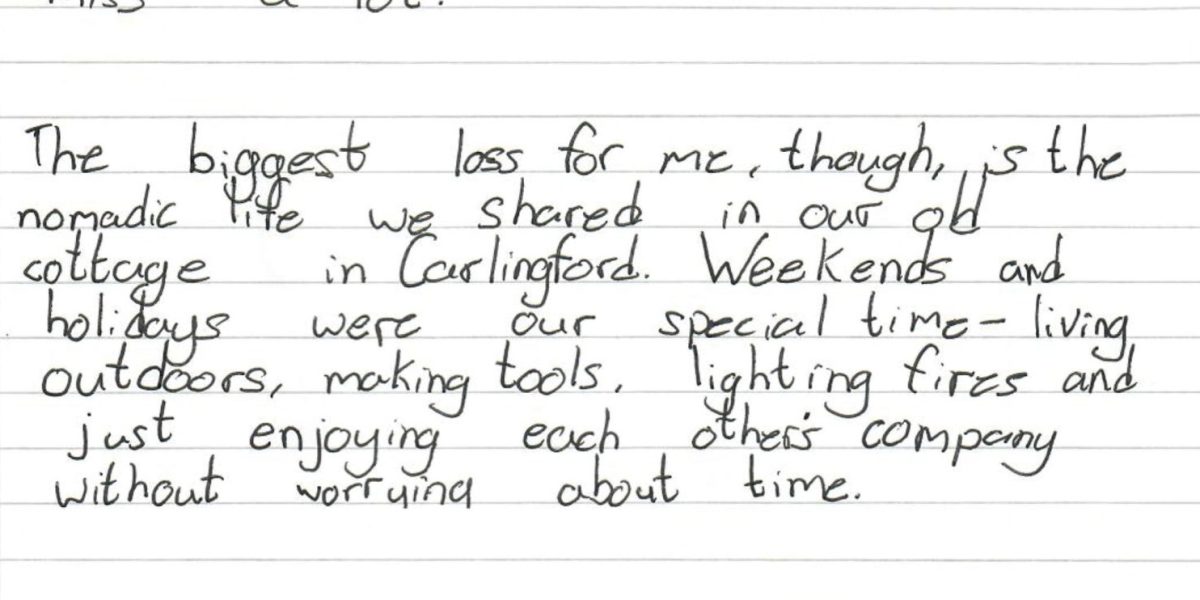 miss a lot.
The biggest loss for me, though, is the
nomadic life we shared in our old
cottage in Carlingford. Weekends and
holidays were our special time - living
outdoors, making tools, lighting fires and
just enjoying each other's company
without worrying about time.